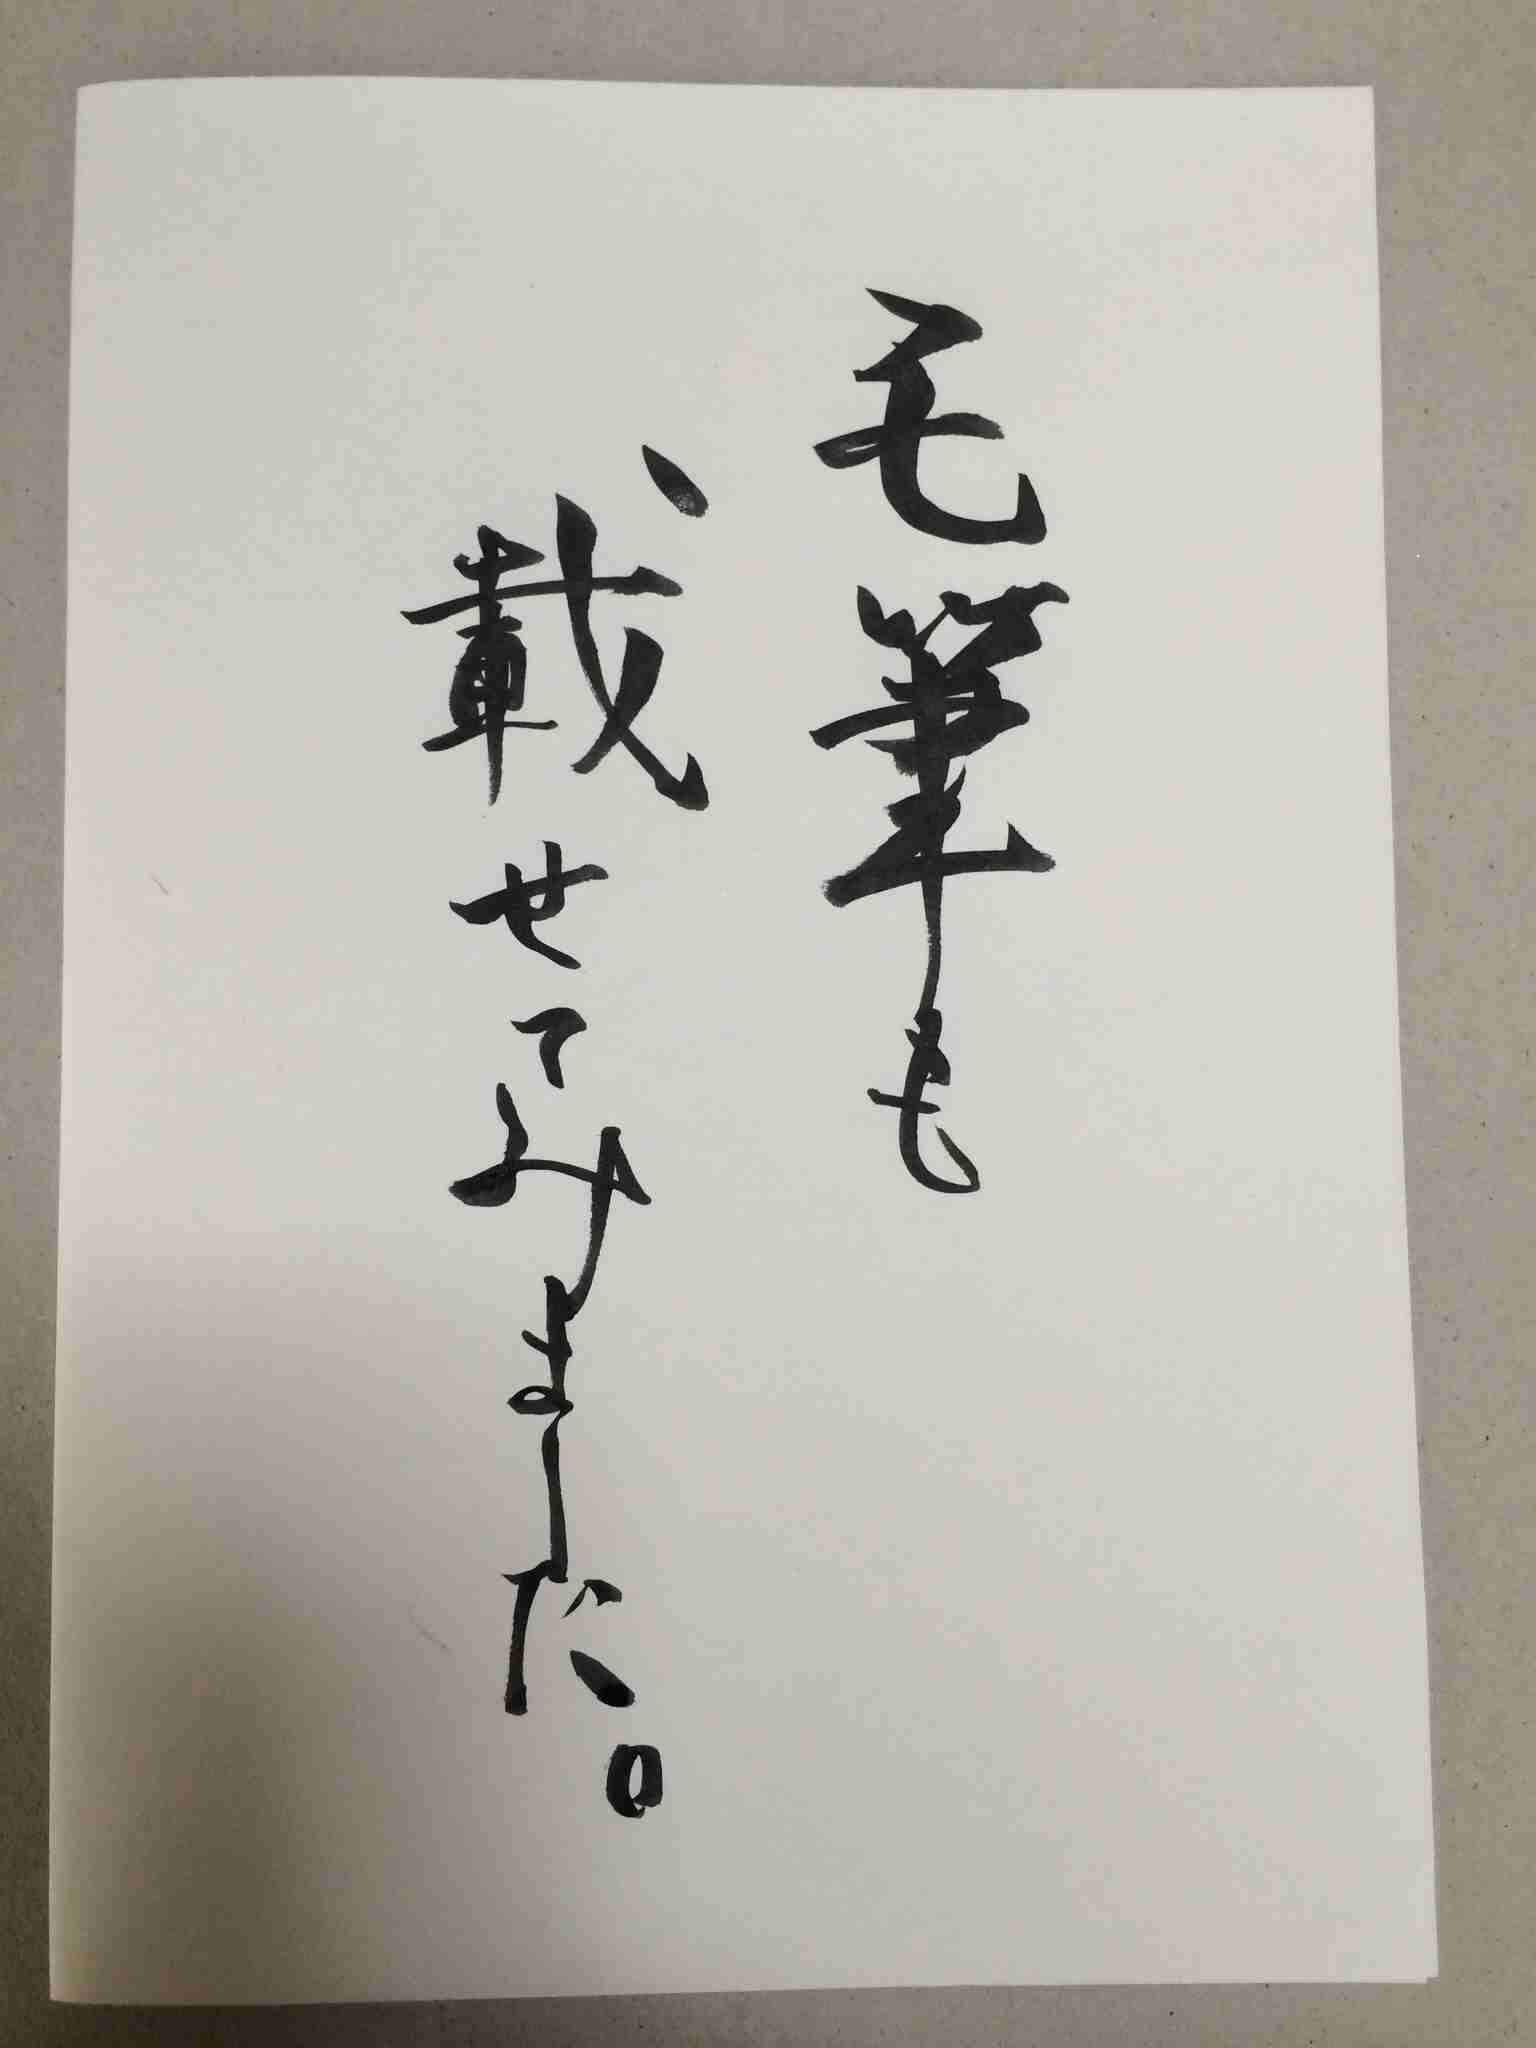 毛筆も
載せてみました。